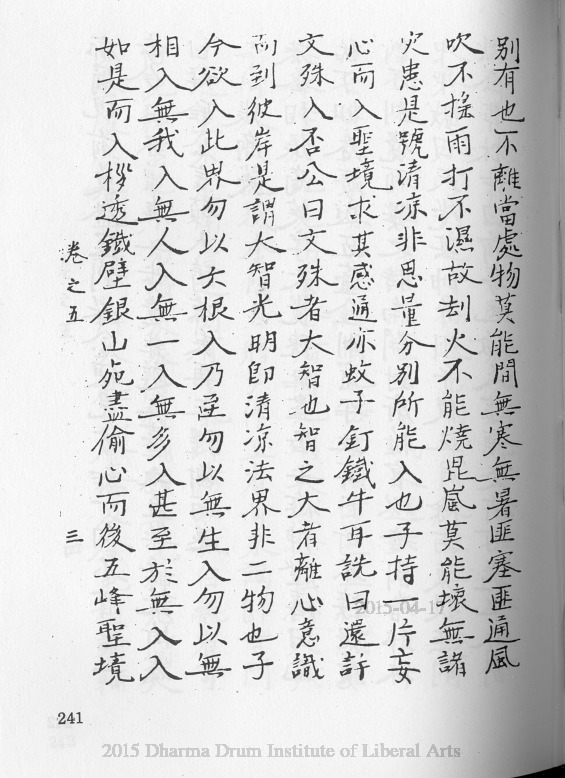 別有也不離當處物莫能間無寒無暑匪塞匪通風
吹不搖雨打不濕故刦火不能燒毘嵐莫能壞無諸
灾患是號清凉非思量分別所能入也子持一片妄
心而入聖境求其感通亦蚊子釘鐵牛耳詵曰還許
文殊入否公曰文殊者大智也智之大者離心意識
而到彼岸是謂大智光明即清凉法界非二物也子
今欲入此界勿以大根入乃至勿以無生入勿以無
相入無我入無人入無一入無多入甚至於無入入
如是而入拶透鐵壁銀山死盡偷心而後五峰聖境
卷之五
三
241
2015-04-17
2015 Dharma Drum Institute of Liberal Arts